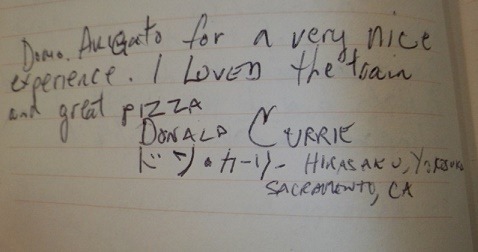 Domo. Arigato for a very nice
experience. I LOVED the train
and great PIZZA
DONALD CURRIE
ドン・カーリー HIRASAKU, YOKOSUKA
SACRAMENTO, CA